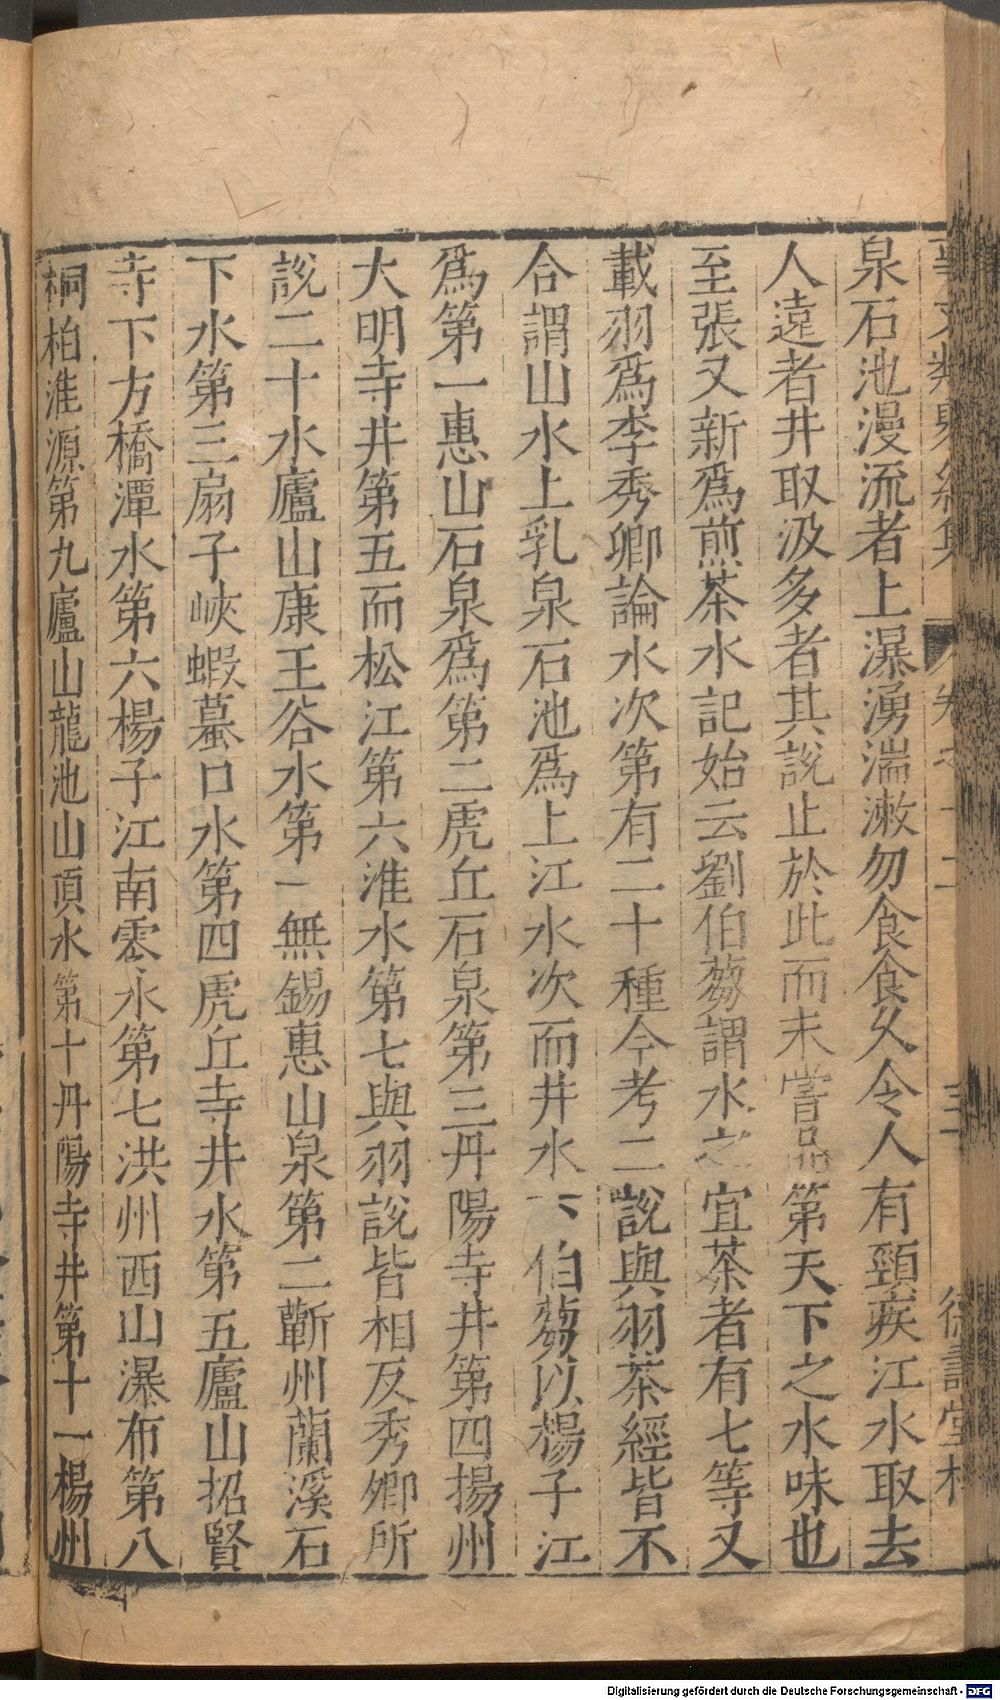 事文類聚續集 卷之十二 三 德壽堂梓
泉石池漫流者上瀑湧湍漱勿食食久令人有頸疾江水取去
人遠者井取汲多者其說止於此而未嘗品第天下之水味也
至張又新爲煎茶水記始云劉伯芻謂水之宜茶者有七等又
載羽爲李秀卿論水次第有二十種今考二說與羽茶經皆不
合謂山水上乳泉石池爲上江水次而井水下伯芻以楊子江
爲第一惠山石泉爲第二虎丘石泉第三丹陽寺井第四揚州
大明寺井第五而松江第六淮水第七與羽說皆相反秀卿所
說二十水廬山康王谷水第一無錫惠山泉第二蘄州蘭溪石
下水第三扇子峽蝦蟇口水第四虎丘寺井水第五廬山招賢
寺下方橋潭水第六楊子江南零水第七洪州西山瀑布第八
桐柏淮源第九廬山龍池山頂水第十丹陽寺井第十一楊州
Digitalisierung gefördert durch die Deutsche Forschungsgemeinschaft - DFG